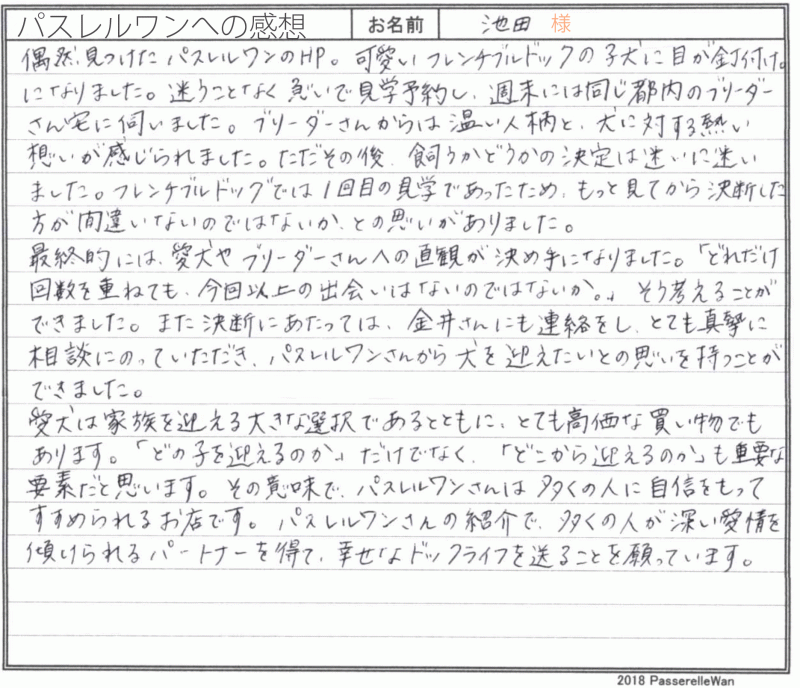 パスレルワンへの感想 お名前 池田 様
偶然見つけたパスレルワンのHP。可愛いフレンチブルドックの子犬に目が釘付け
になりました。迷うことなく急いで見学予約し、週末には同じ都内のブリーダー
さん宅に伺いました。ブリーダーさんからは温い人柄と、犬に対する熱い
想いが感じられました。ただその後、飼うかどうかの決定は迷いに迷い
ました。フレンチブルドッグでは1回目の見学であったため、もっと見てから決断した
方が間違いないのではないか、との思いがありました。
最終的には、愛犬やブリーダーさんへの直観が決め手になりました。「どれだけ
回数を重ねても、今回以上の出会いはないのではないか。」そう考えることが
できました。また決断にあたっては、金井さんにも連絡をし、とても真摯に
相談にのっていただき、パスレルワンさんから犬を迎えたいとの思いを持つことが
できました。
愛犬は家族を迎える大きな選択であるとともに、とても高価な買い物でも
あります。「どの子を迎えるのか」だけでなく、「どこから迎えるのか」も重要な
要素だと思います。その意味で、パスレルワンさんは多くの人に自信をもって
すすめられるお店です。パスレルワンさんの紹介で、多くの人が深い愛情を
傾けられるパートナーを得て、幸せなドックライフを送ることを願っています。
2018 PasserelleWan